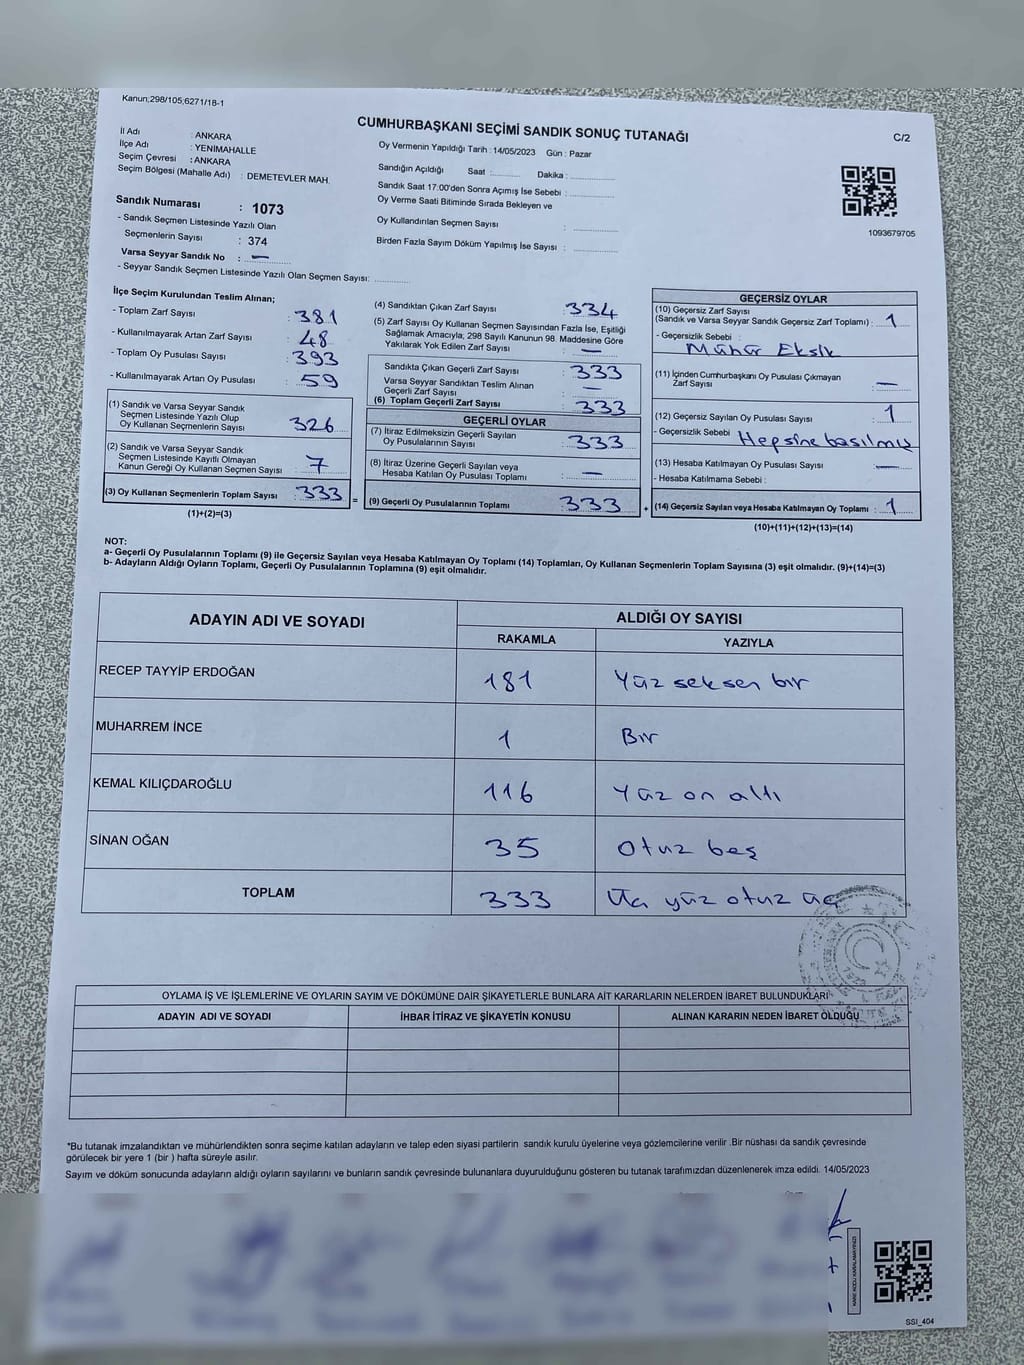 Kanun;298/105;6271/18-1
CUMHURBAŞKANI SEÇİMİ SANDIK SONUÇ TUTANAĞI
C/2
İl Adı : ANKARA
İlçe Adı : YENİMAHALLE
Seçim Çevresi : ANKARA
Seçim Bölgesi (Mahalle Adı) : DEMETEVLER MAH.
Sandık Numarası : 1073
- Sandık Seçmen Listesinde Yazılı Olan
Seçmenlerin Sayısı : 374
Varsa Seyyar Sandık No : —
- Seyyar Sandık Seçmen Listesinde Yazılı Olan Seçmen Sayısı:
Oy Vermenin Yapıldığı Tarih : 14/05/2023 Gün : Pazar
Sandığın Açıldığı Saat : Dakika :
Sandık Saat 17:00'den Sonra Açımış İse Sebebi :
Oy Verme Saati Bitiminde Sırada Bekleyen ve
Oy Kullandırılan Seçmen Sayısı :
Birden Fazla Sayım Döküm Yapılmış İse Sayısı :
1093679705
İlçe Seçim Kurulundan Teslim Alınan;
- Toplam Zarf Sayısı : 381
- Kullanılmayarak Artan Zarf Sayısı : 48
- Toplam Oy Pusulası Sayısı : 393
- Kullanılmayarak Artan Oy Pusulası : 59
(1) Sandık ve Varsa Seyyar Sandık
Seçmen Listesinde Yazılı Olup
Oy Kullanan Seçmenlerin Sayısı : 326
(2) Sandık ve Varsa Seyyar Sandık
Seçmen Listesinde Kayıtlı Olmayan
Kanun Gereği Oy Kullanan Seçmen Sayısı : 7
(3) Oy Kullanan Seçmenlerin Toplam Sayısı : 333
(1)+(2)=(3)
=
(4) Sandıktan Çıkan Zarf Sayısı : 334
(5) Zarf Sayısı Oy Kullanan Seçmen Sayısından Fazla İse, Eşitliği
Sağlamak Amacıyla, 298 Sayılı Kanunun 98. Maddesine Göre
Yakılarak Yok Edilen Zarf Sayısı : —
Sandıkta Çıkan Geçerli Zarf Sayısı : 333
Varsa Seyyar Sandıktan Teslim Alınan
Geçerli Zarf Sayısı : —
(6) Toplam Geçerli Zarf Sayısı : 333
GEÇERLİ OYLAR
(7) İtiraz Edilmeksizin Geçerli Sayılan
Oy Pusulalarının Sayısı : 333
(8) İtiraz Üzerine Geçerli Sayılan veya
Hesaba Katılan Oy Pusulası Toplamı : —
(9) Geçerli Oy Pusulalarının Toplamı : 333
+
GEÇERSİZ OYLAR
(10) Geçersiz Zarf Sayısı
(Sandık ve Varsa Seyyar Sandık Geçersiz Zarf Toplamı) : 1
- Geçersizlik Sebebi :
Mühür Eksik
(11) İçinden Cumhurbaşkanı Oy Pusulası Çıkmayan
Zarf Sayısı : —
(12) Geçersiz Sayılan Oy Pusulası Sayısı : 1
- Geçersizlik Sebebi : Hepsine basılmış
(13) Hesaba Katılmayan Oy Pusulası Sayısı : —
- Hesaba Katılmama Sebebi :
(14) Geçersiz Sayılan veya Hesaba Katılmayan Oy Toplamı : 1
(10)+(11)+(12)+(13)=(14)
NOT:
a- Geçerli Oy Pusulalarının Toplamı (9) ile Geçersiz Sayılan veya Hesaba Katılmayan Oy Toplamı (14) Toplamları, Oy Kullanan Seçmenlerin Toplam Sayısına (3) eşit olmalıdır. (9)+(14)=(3)
b- Adayların Aldığı Oyların Toplamı, Geçerli Oy Pusulalarının Toplamına (9) eşit olmalıdır.
ADAYIN ADI VE SOYADI ALDIĞI OY SAYISI
RAKAMLA YAZIYLA
RECEP TAYYİP ERDOĞAN 181 Yüz seksen bir
MUHARREM İNCE 1 Bir
KEMAL KILIÇDAROĞLU 116 Yüz on altı
SİNAN OĞAN 35 Otuz beş
TOPLAM 333 Üç yüz otuz üç
OYLAMA İŞ VE İŞLEMLERİNE VE OYLARIN SAYIM VE DÖKÜMÜNE DAİR ŞİKAYETLERLE BUNLARA AİT KARARLARIN NELERDEN İBARET BULUNDUKLARI
ADAYIN ADI VE SOYADI İHBAR İTİRAZ VE ŞİKAYETİN KONUSU ALINAN KARARIN NEDEN İBARET OLDUĞU
*Bu tutanak imzalandıktan ve mühürlendikten sonra seçime katılan adayların ve talep eden siyasi partilerin sandık kurulu üyelerine veya gözlemcilerine verilir .Bir nüshası da sandık çevresinde
görülecek bir yere 1 (bir ) hafta süreyle asılır.
Sayım ve döküm sonucunda adayların aldığı oyların sayılarını ve bunların sandık çevresinde bulunanlara duyurulduğunu gösteren bu tutanak tarafımızdan düzenlenerek imza edildi. 14/05/2023
KARE KODU KARALAMAYINIZ!
SSI_404